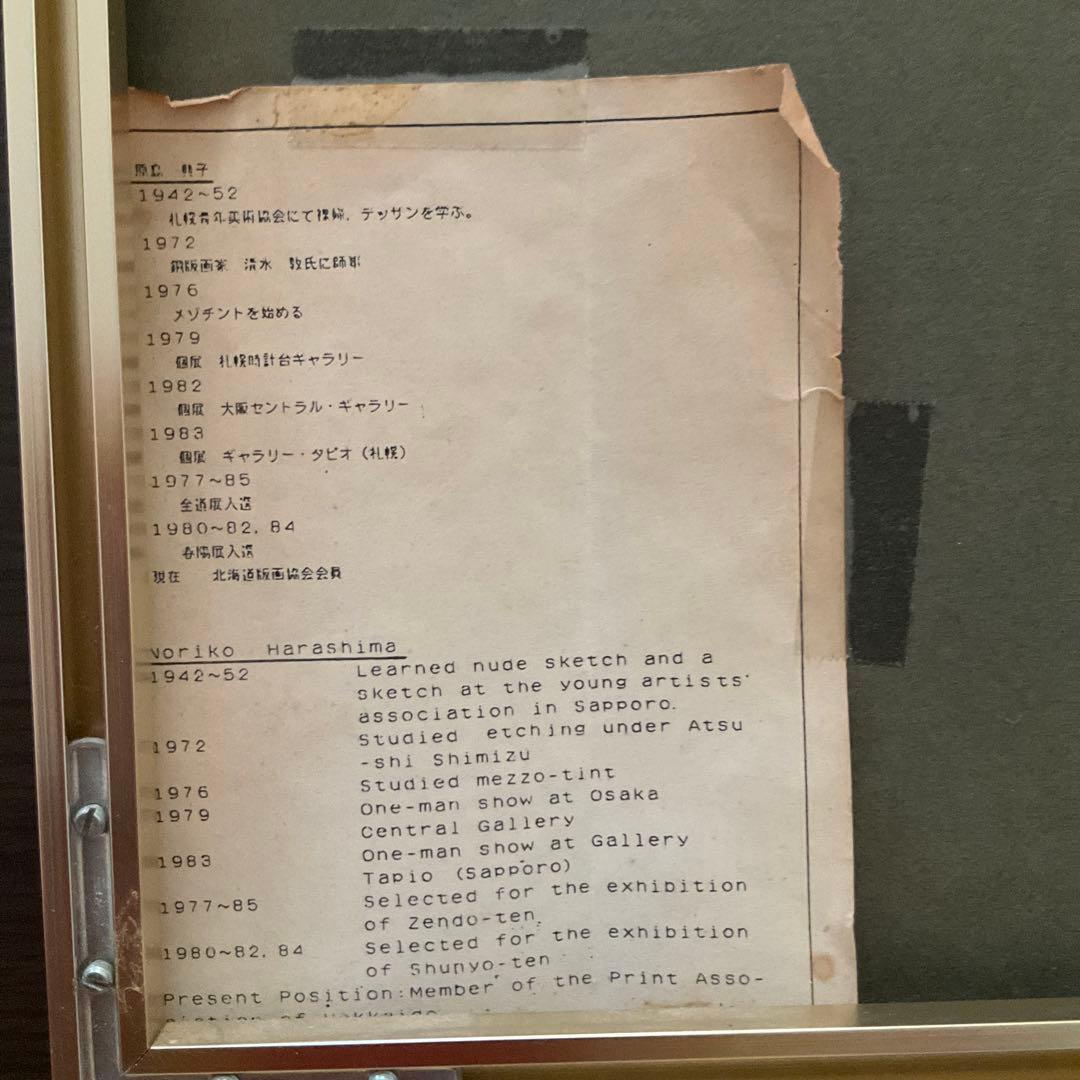 原島 典子
1942~52
札幌青年美術協会にて裸婦、デッサンを学ぶ。
1972
銅版画家 清水 敦氏に師事
1976
メゾチントを始める
1979
個展 札幌時計台ギャラリー
1982
個展 大阪セントラル・ギャラリー
1983
個展 ギャラリー・タピオ(札幌)
1977~85
全道展入選
1980~82, 84
春陽展入選
現在 北海道版画協会会員
Noriko Harashima
1942~52 Learned nude sketch and a
sketch at the young artists'
association in Sapporo.
1972 Studied etching under Atsu
-shi Shimizu
1976 Studied mezzo-tint
1979 One-man show at Osaka
Central Gallery
1983 One-man show at Gallery
Tapio (Sapporo)
1977~85 Selected for the exhibition
of Zendo-ten.
1980~82, 84 Selected for the exhibition
of Shunyo-ten
Present Position:Member of the Print Asso-
ciation of Hokkaido